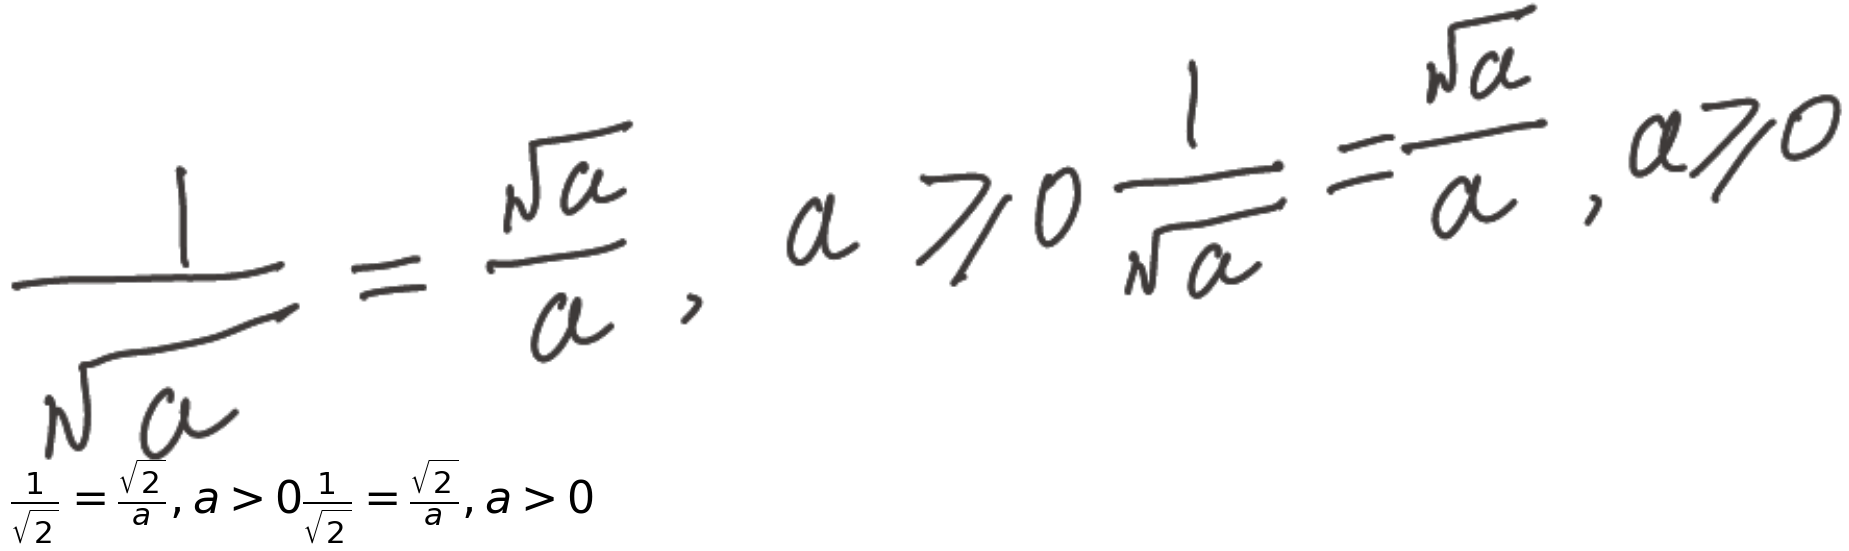 \frac{1}{\sqrt{a}} = \frac{\sqrt{a}}{a}, a \geqslant 0 \frac{1}{\sqrt{a}} = \frac{\sqrt{a}}{a}, a \geqslant 0
\frac{1}{\sqrt{2}} = \frac{\sqrt{2}}{a}, a > 0 \frac{1}{\sqrt{2}} = \frac{\sqrt{2}}{a}, a > 0